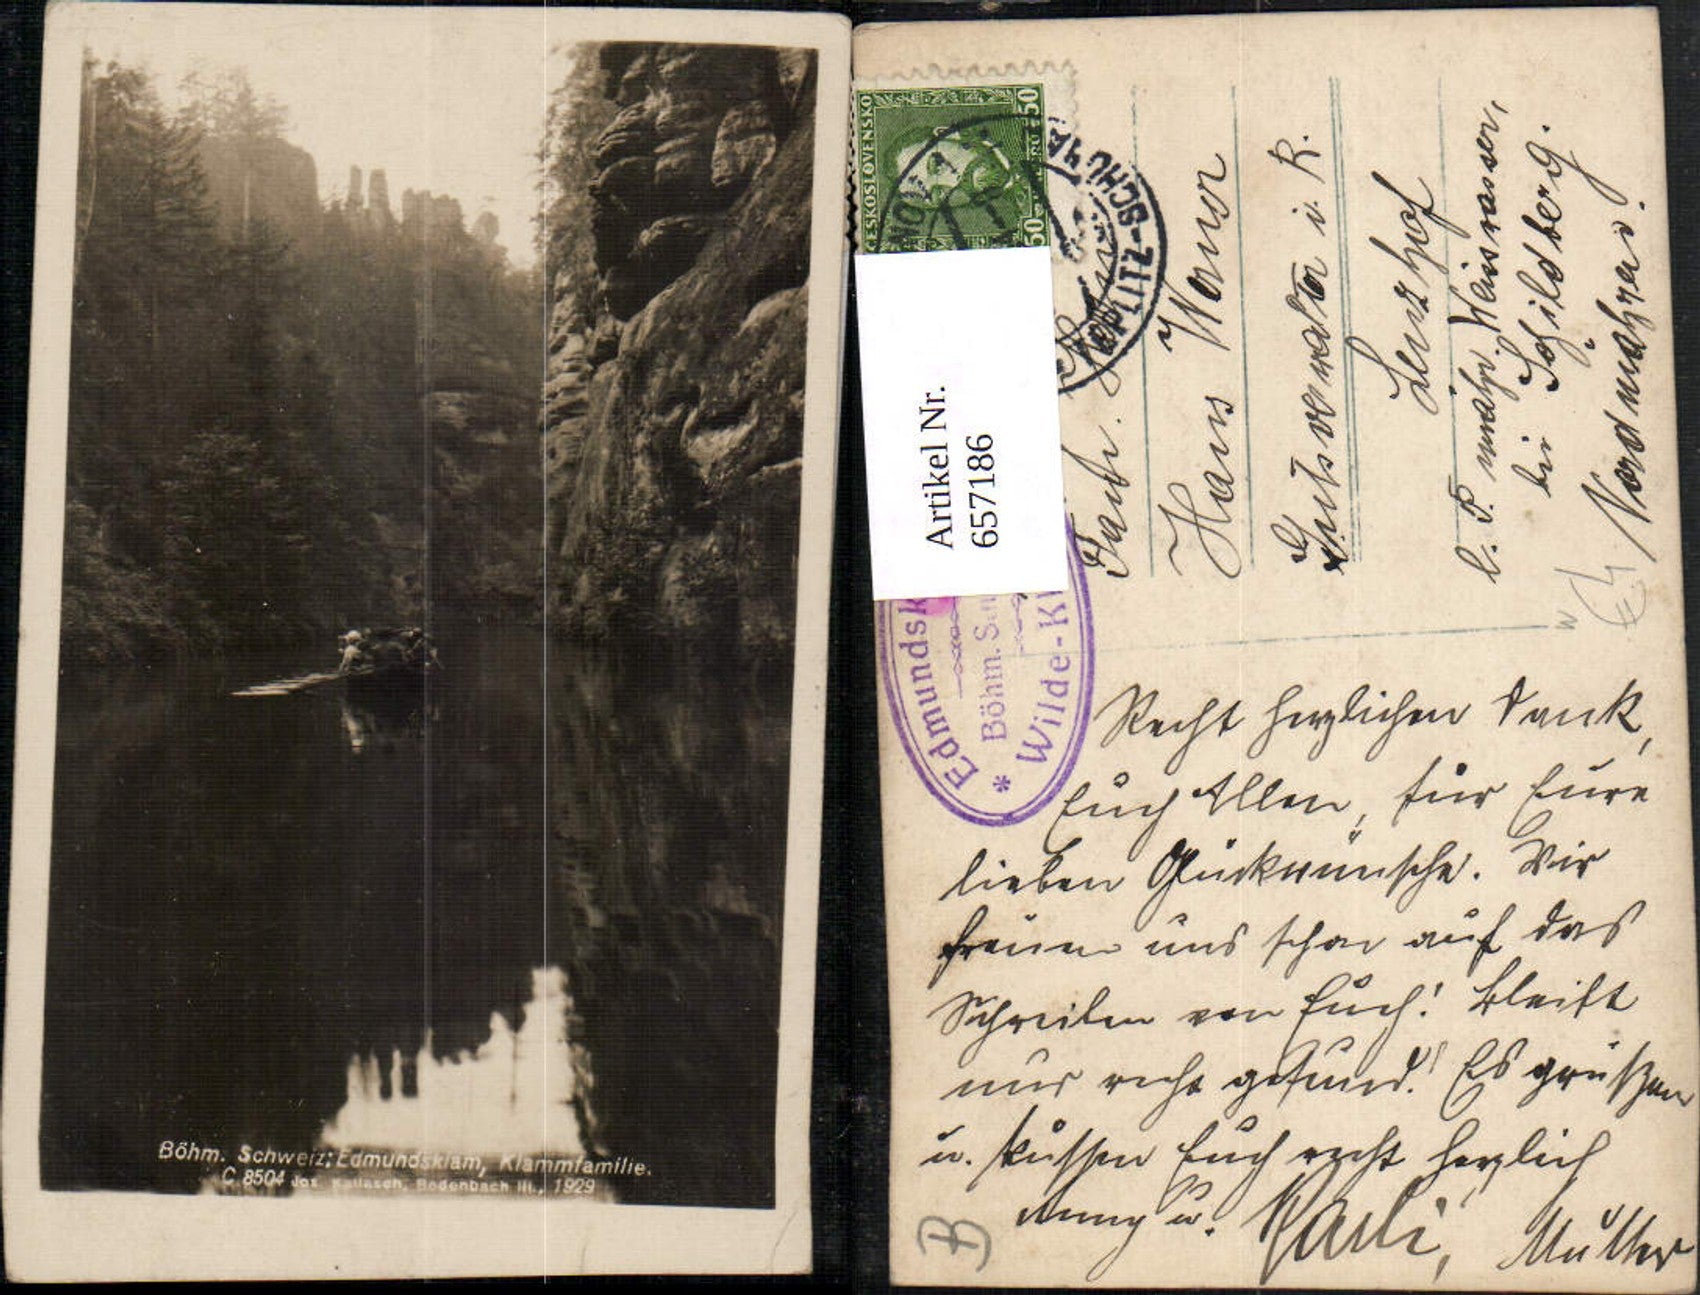 Böhm. Schweiz; Edmundsklam, Klammfamilie.
C. 8504 Jos. Kallasch, Bodenbach III., 1929
ČESKOSLOVENSKO
50
50
TEPLITZ-SCHÖ
Artikel Nr.
657186
Edmundsk
Böhm. S
* Wilde-Kl
Fam.
Hans Werner
Gutsverwalter i. R.
Lenzhof
P. mähr. Weisswasser,
bei Schildberg.
Nordmähren.
Recht herzlichen Dank,
Euch Allen, für Eure
lieben Glückwünsche. Wir
freuen uns schon auf das
Schreiben von Euch! Bleibt
nur recht gesund! Es grüßen
u. küssen Euch recht herzlich
Anny u. Karli, Mutter
B